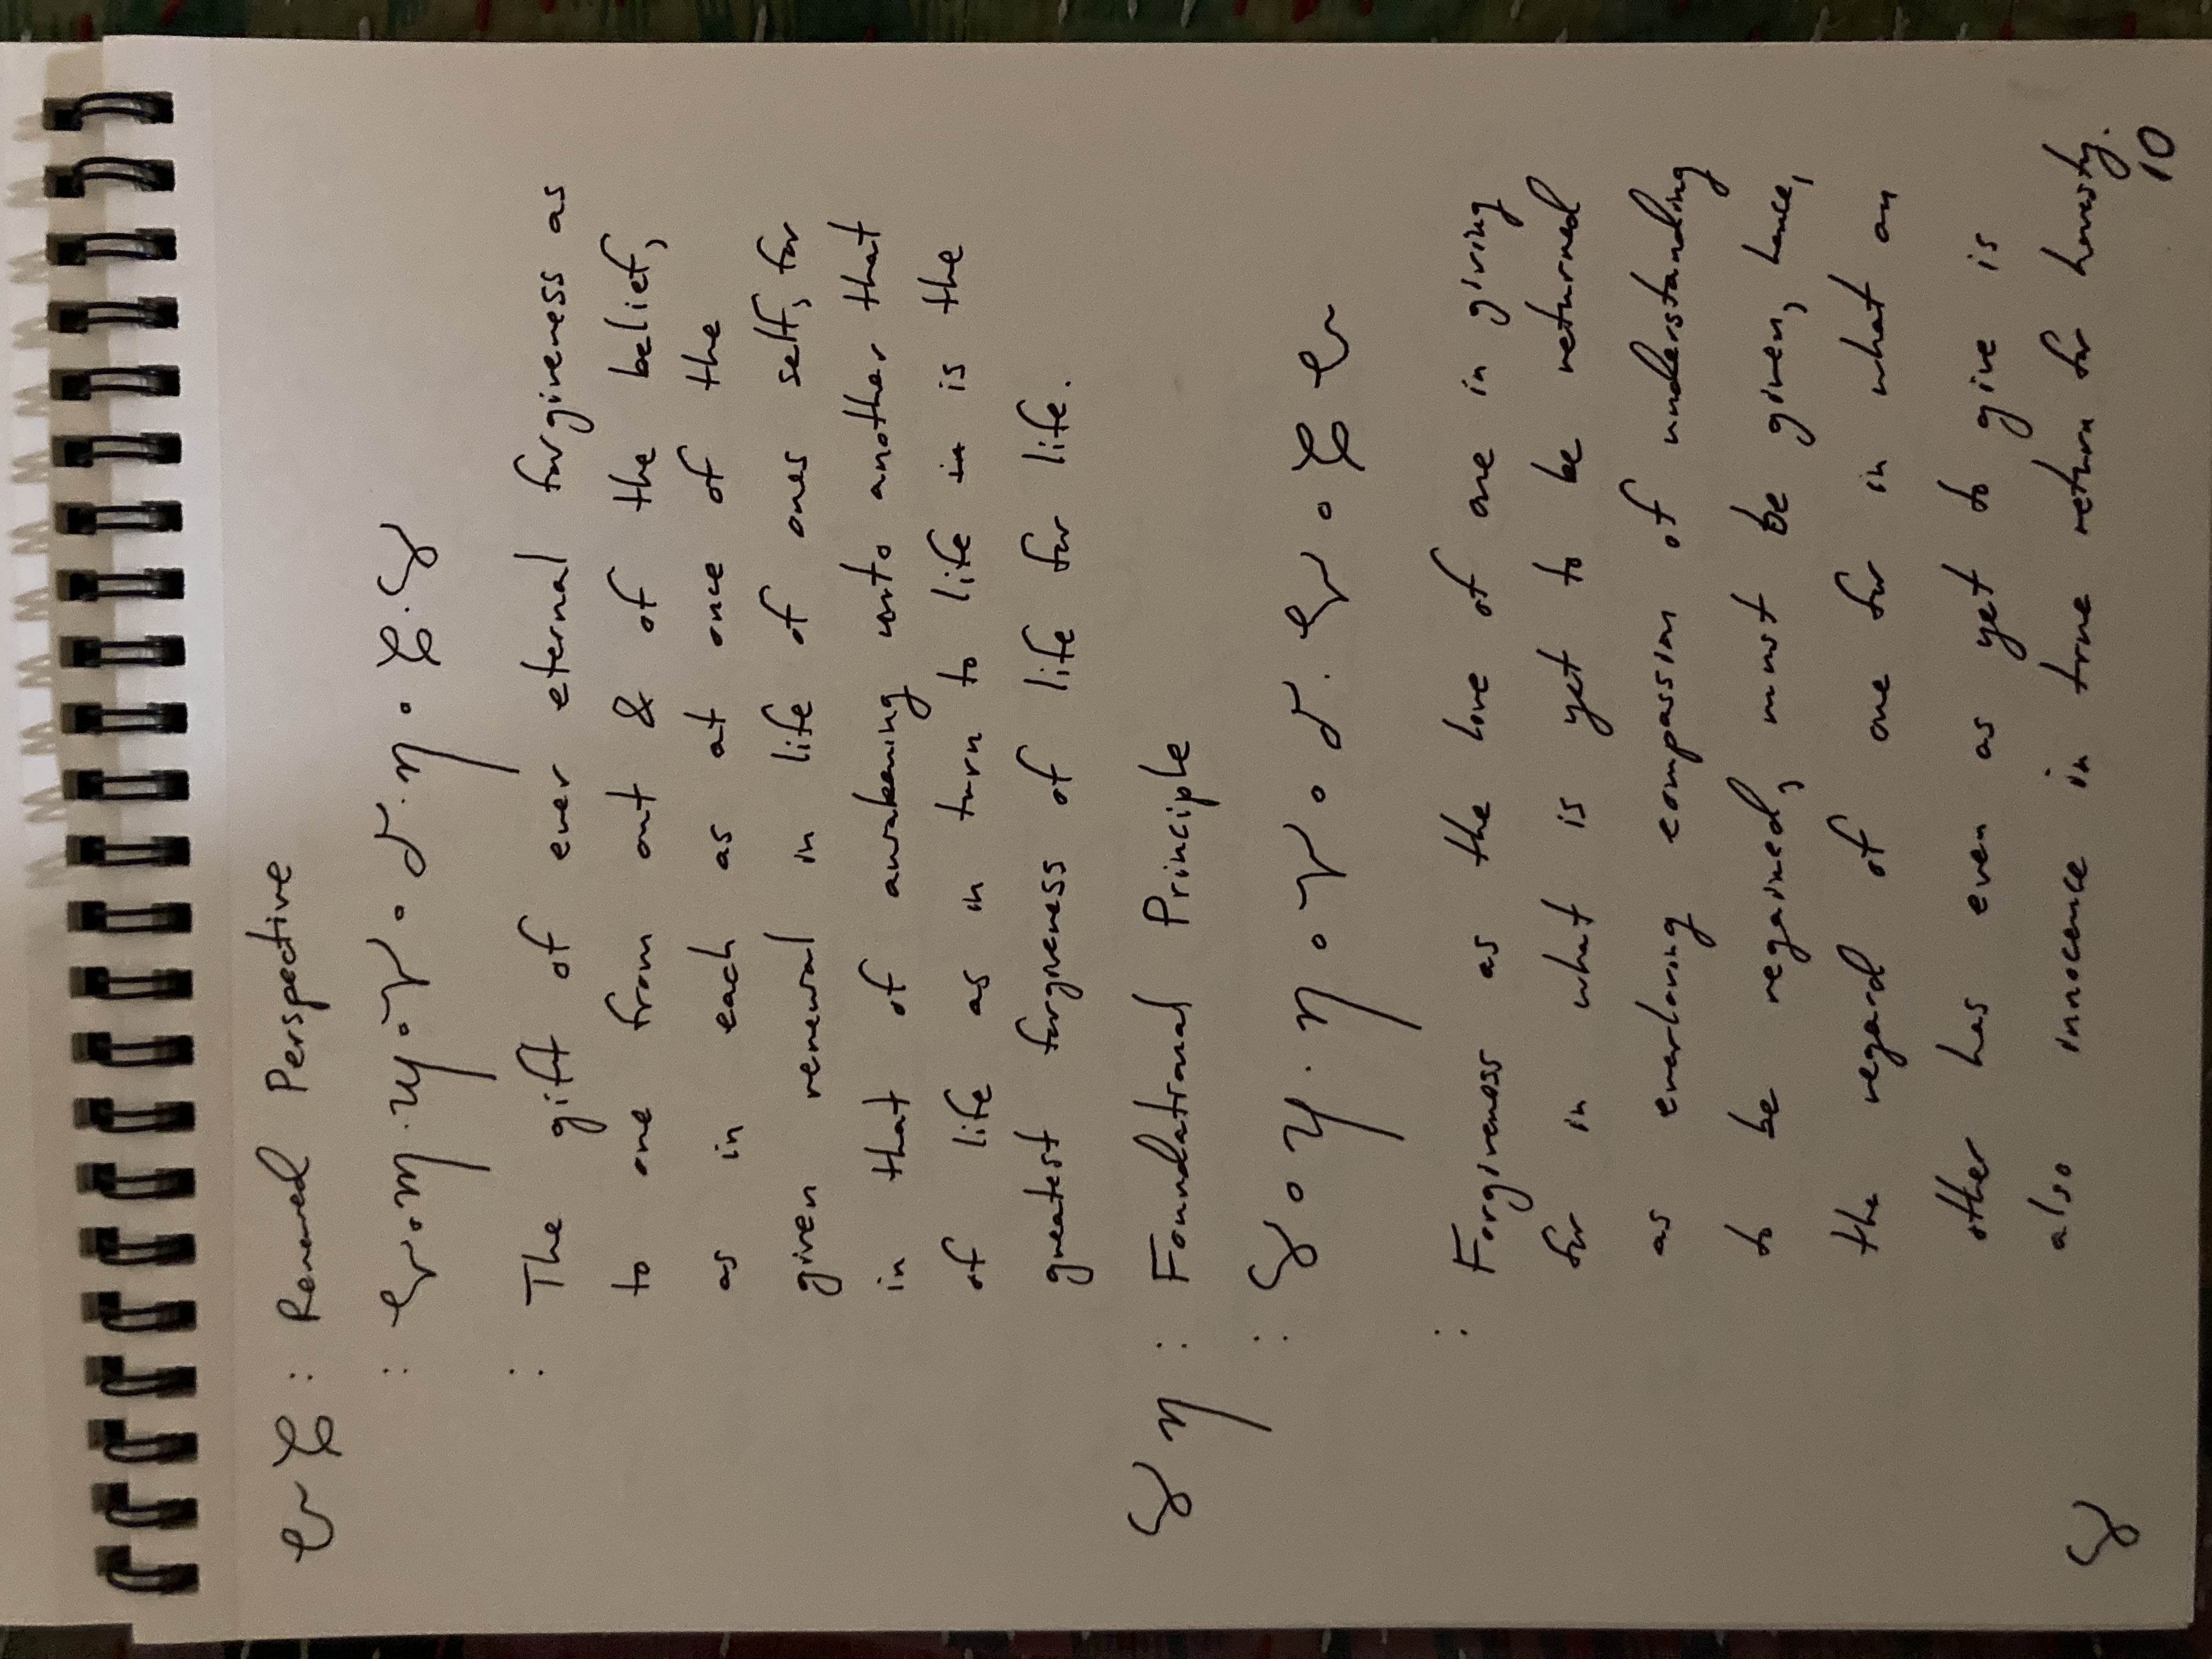 : Renewed Perspective
: The gift of ever eternal forgiveness as
to one from out & of the belief,
as in each as at once of the
given renewal in life of ones self, for
in that of awakening unto another that
of life as in turn to life in is the
greatest forgiveness of life for life.
: Foundational Principle
: Forgiveness as the love of one in giving
for in what is yet to be returned
as everloving compassion of understanding
to be regained, must be given, hence,
the regard of one for in what an
other has even as yet to give is
also innocence in true return for honesty.
10